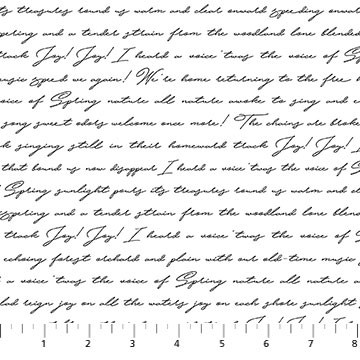 its treasures round us warm and clear onward speeding onward
spring and a tender strain from the woodland lone blended
track Joy! Joy! I heard a voice 'twas the voice of Sp
music sped we again! We're home returning to the free
voice of Spring nature all nature awoke to sing and
song sweet odors welcome once more! The chains are broke
k singing still in their homeward track Joy! Joy! I
that bound us now disappear I heard a voice 'twas the voice of S
Spring sunlight pours its treasures round us warm and cl
spring and a tender strain from the woodland lone blen
track Joy! Joy! I heard a voice 'twas the voice of
echoing forest orchard and plain with our old-time music
a voice 'twas the voice of Spring nature all nature a
glad reign joy on all the waters joy on each shore sunlight
1 2 3 4 5 6 7 8